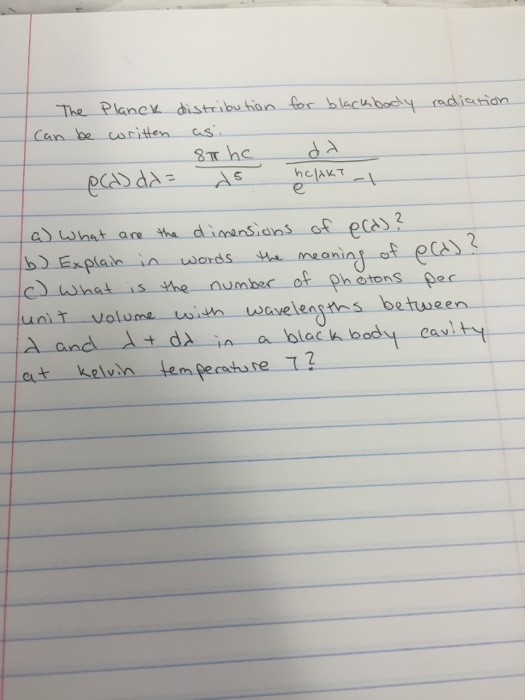 The Planck distribution for blackbody radiation
can be written as.
ρ(λ)dλ = 8π hc / λ5 dλ / e hc/λKT - 1
a) What are the dimensions of ρ(λ)?
b) Explain in words the meaning of ρ(λ)?
c) What is the number of photons per
unit volume with wavelengths between
λ and λ + dλ in a black body cavity
at kelvin temperature T?